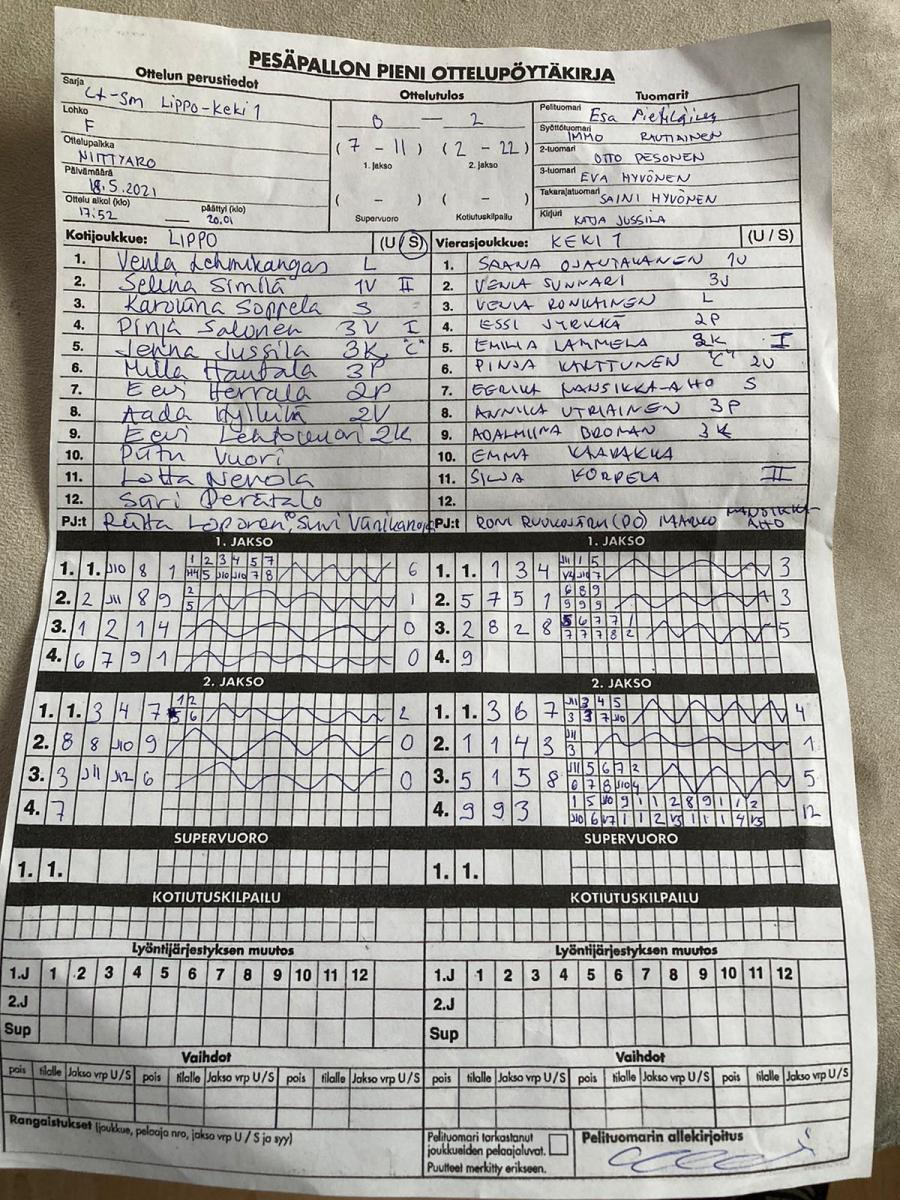 PESÄPALLON PIENI OTTELUPÖYTÄKIRJA
Ottelun perustiedot
Ottelutulos
Tuomarit
Sarja
Lippo-Keki 1
Lohko
F
Ottelupaikka
NIITTYARO
Päivämäärä
18.5.2021
Ottelu alkoi (klo) päättyi (klo)
17:52 20.01
0 — 2
( 7 - 11 ) ( 2 - 22 )
1. jakso 2. jakso
( - ) ( - )
Supervuoro Kotiutuskilpailu
Pelituomari Esa
Syöttötuomari IMMO RAUTIAINEN
2-tuomari OTTO PESONEN
3-tuomari EVA HYVÖNEN
Takarajatuomari SAINI HYVÖNEN
Kirjuri KATJA JUSSILA
Kotijoukkue: LIPPO (U / S)
1. Venla Lehmikangas L
2. Selina Similä 1V II
3. Karoliina Soppela S
4. Pinja Salonen 3V I
5. Jenna Jussila 3K "C"
6. Milla Hautala 3P
7. Eevi Herrala 2P
8. Aada 2V
9. Eevi Lehtovuori 2K
10. Vuori
11. Lotta Nevola
12. Perätalo
PJ:t Riitta Loponen,
Vierasjoukkue: KEKI 1 (U / S)
1. SAANA 1V
2. VENLA SUNNARI 3V
3. VENLA RONKAINEN L
4. ESSI JYRKKÄ 2P
5. EMILIA LAMMELA 2K I
6. PINJA KARTTUNEN "C" 2V
7. EERIKA MANSIKKA-AHO S
8. ANNIKA UTRIAINEN 3P
9. ADALMIINA BROMAN 3K
10. EMMA
11. KORPELA II
12.
PJ:t MARKO MANSIKKA-AHO
1. JAKSO
1. 1. J10 8 1 6
1 2 3 4 5 7
2. 2 J11 8 9 1
2
5
3. 1 2 1 4 0
4. 6 7 9 1 0
2. JAKSO
1. 1. 3 4 7 2
1 2
2. 8 8 J10 9 0
3. 3 J11 J12 6 0
4. 7
SUPERVUORO
1. 1.
KOTIUTUSKILPAILU
1. JAKSO
1. 1. 1 3 4 3
J11 1 5
2. 5 7 5 1 3
6 8 9
9 9 9
3. 2 8 2 8 5
5 6 7 7 1
7 7 7 8 2
4. 9
2. JAKSO
1. 1. 3 6 7 4
J11 3 4 5
3 3 7 J10
2. 1 1 4 3 1
J11
3
3. 5 1 5 8 5
J11 5 6 7 2
6 7 8 J10 4
4. 9 9 3 12
1 5 J10 9 1 1 2 8 9 1 1 2
SUPERVUORO
1. 1.
KOTIUTUSKILPAILU
Lyöntijärjestyksen muutos
1.J 1 2 3 4 5 6 7 8 9 10 11 12
2.J
Sup
Lyöntijärjestyksen muutos
1.J 1 2 3 4 5 6 7 8 9 10 11 12
2.J
Sup
Vaihdot
pois tilalle Jakso vrp U/S pois tilalle Jakso vrp U/S pois tilalle Jakso vrp U/S
Vaihdot
pois tilalle Jakso vrp U/S pois tilalle Jakso vrp U/S pois tilalle Jakso vrp U/S
Rangaistukset (joukkue, pelaaja nro, jakso vrp U / S ja syy)
Pelituomari tarkastanut
joukkueiden pelaajaluvat.
Puutteet merkitty erikseen.
Pelituomarin allekirjoitus